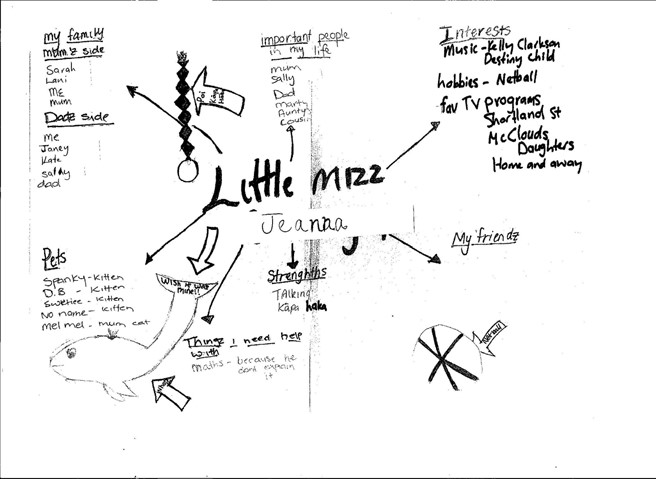 my family
mum'z side
Sarah
Lani
Me
mum
Dadz side
me
Janey
Kate
sally
dad
Poi
important people
in my life
mum
Sally
Dad
marty
Aunty
Cousin
Interests
Music - Kelly Clarkson
Destiny Child
hobbies - Netball
fav TV programs
Shortland St
McClouds
Daughters
Home and away
Little mizz
Jeanna
My friendz
Pets
Spanky - Kitten
D.B - Kitten
Sweetiee - Kitten
No name - Kitten
mel mel - mum cat
wish it was
mine!!
Strenghths
TAlking
Kapa haka
Things i need help
with
maths - because he
dont explain
it